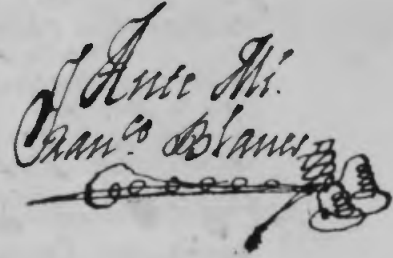 Ante Mí.
Fran.co Blanes